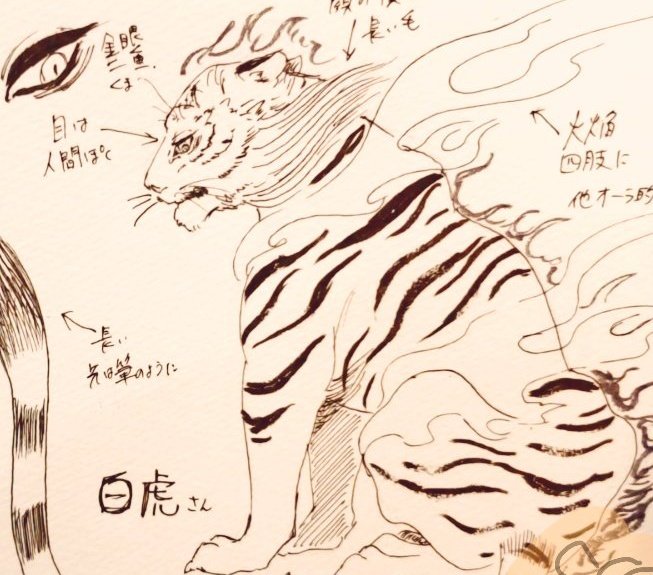 長い毛
金眼
くま
目は
人間ぽく
火焔
四肢に
他オーラ的
長い
先は筆のように
白虎さん